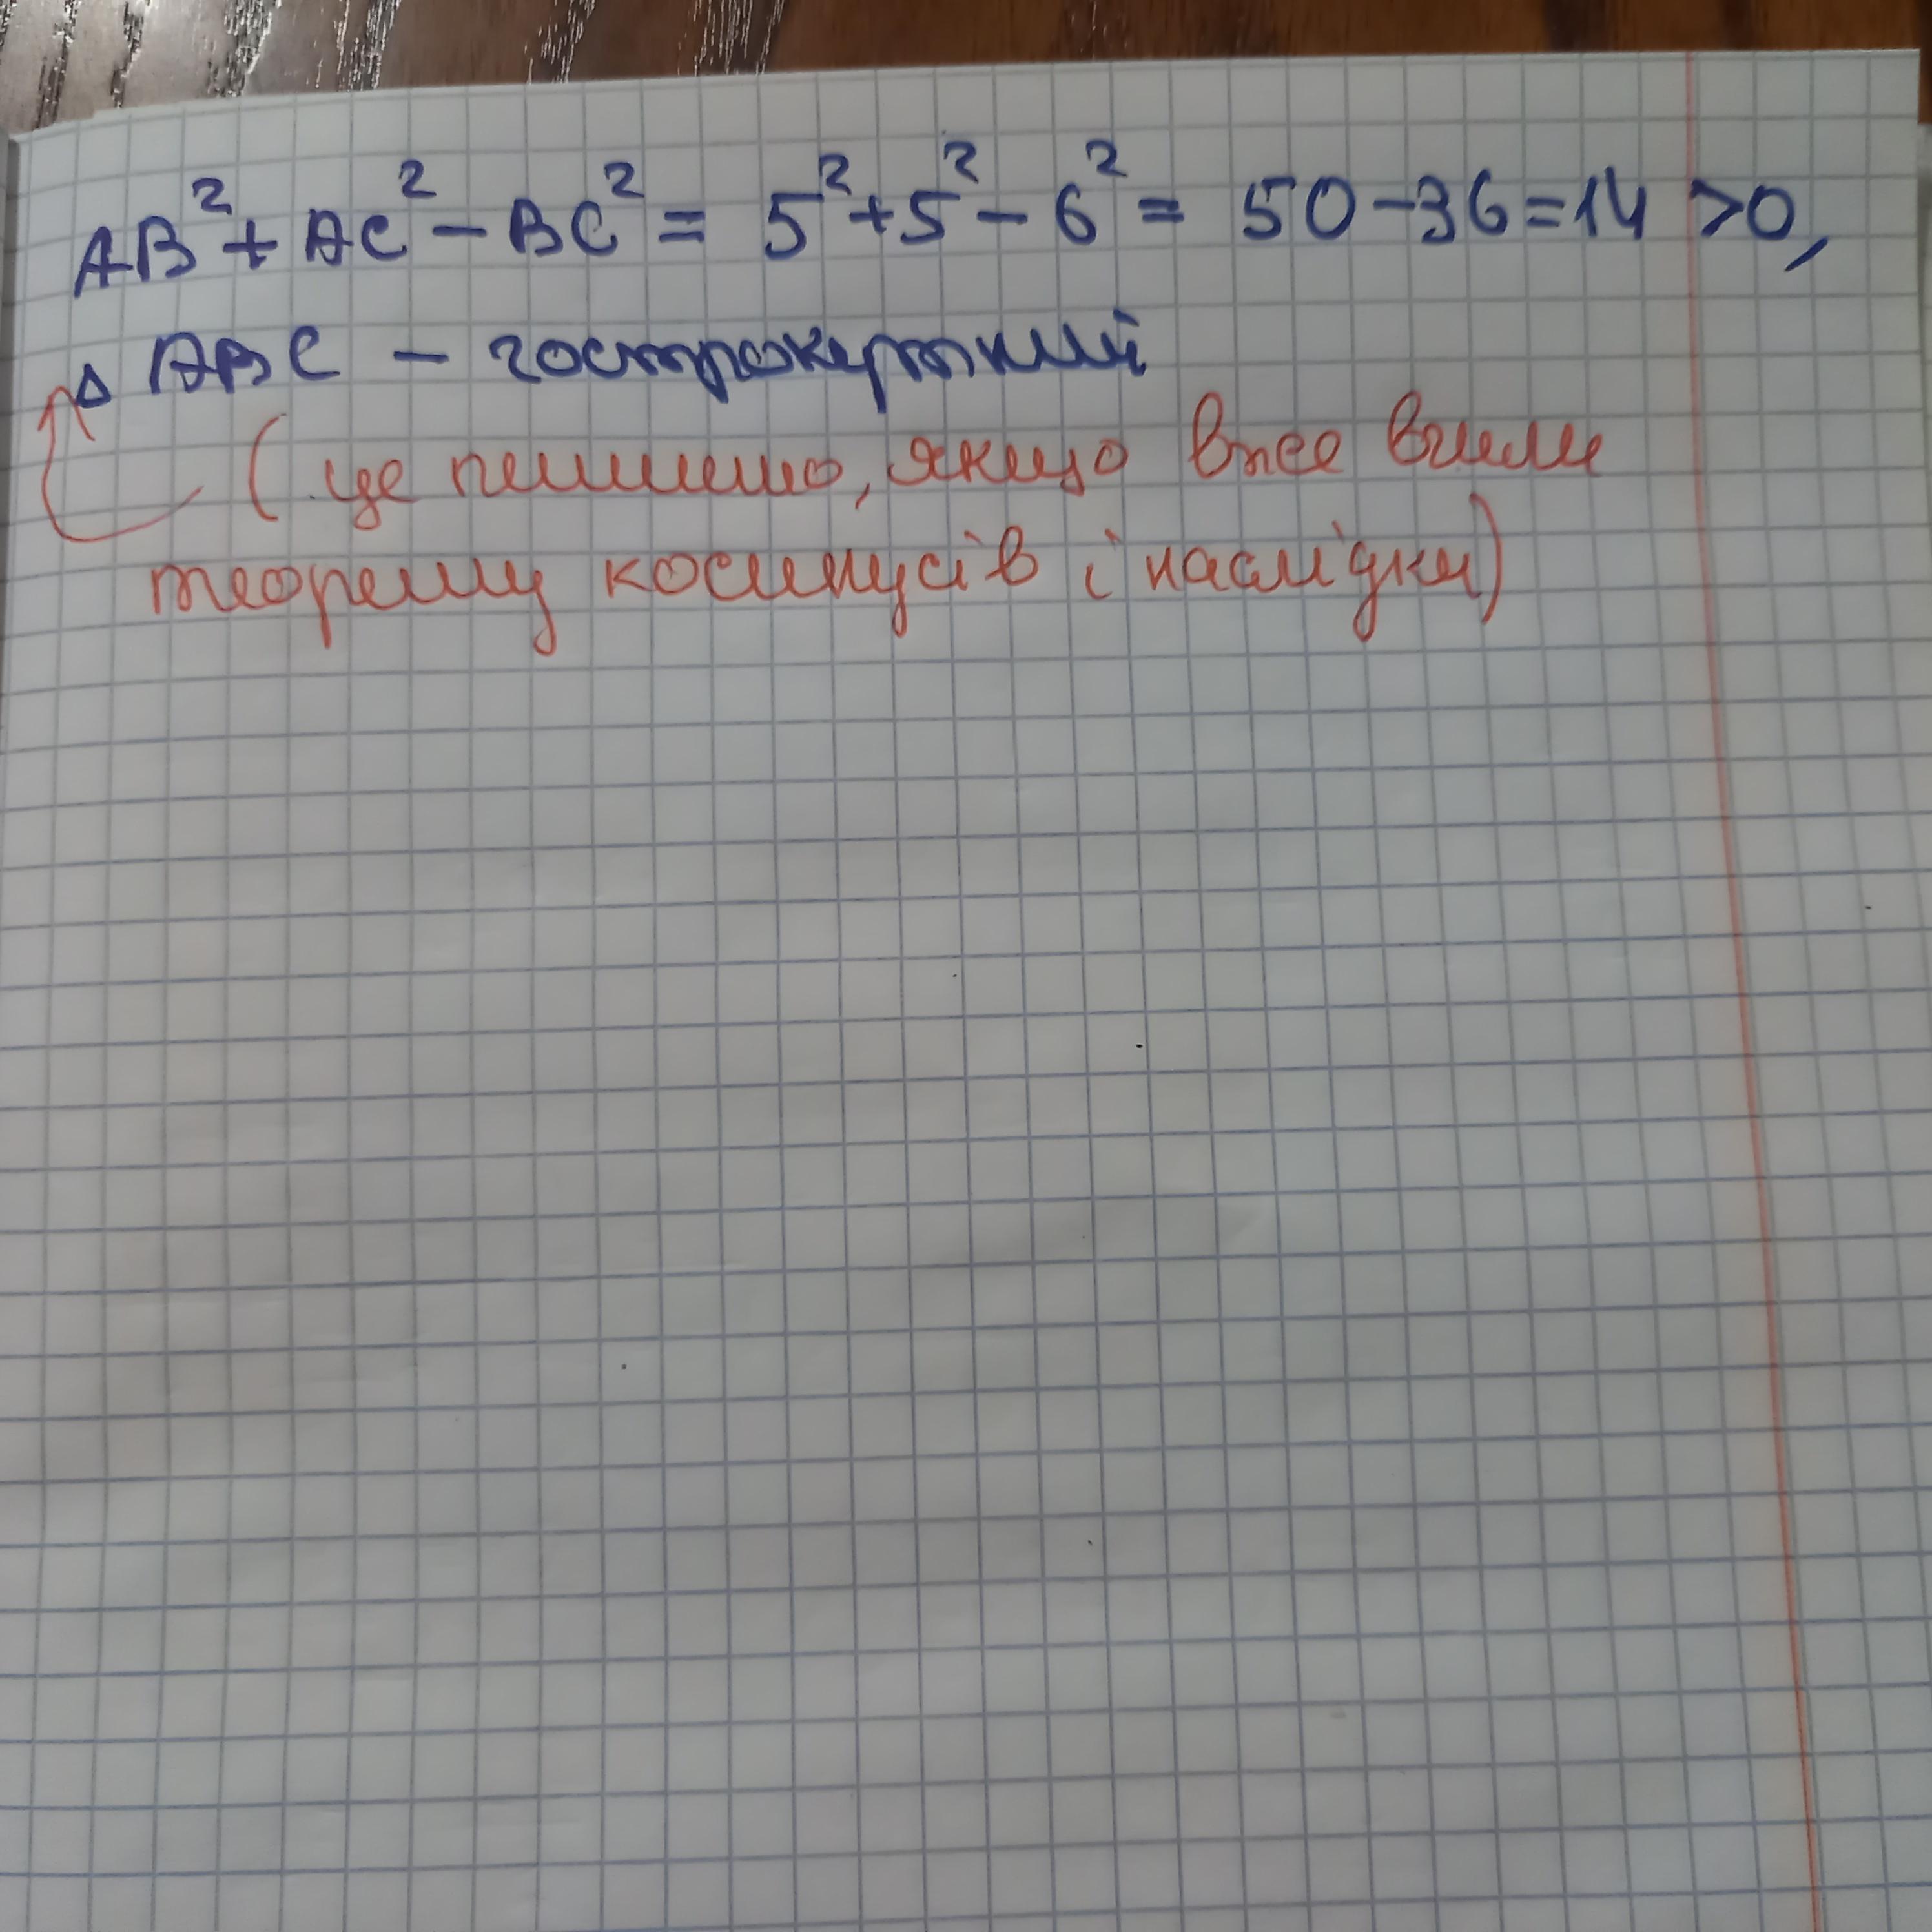 AB² + AC² - BC² = 5² + 5² - 6² = 50 - 36 = 14 > 0,
Δ ABC - гострокутний
(це пишемо, якщо вже вчили
теорему косинусів і наслідки)